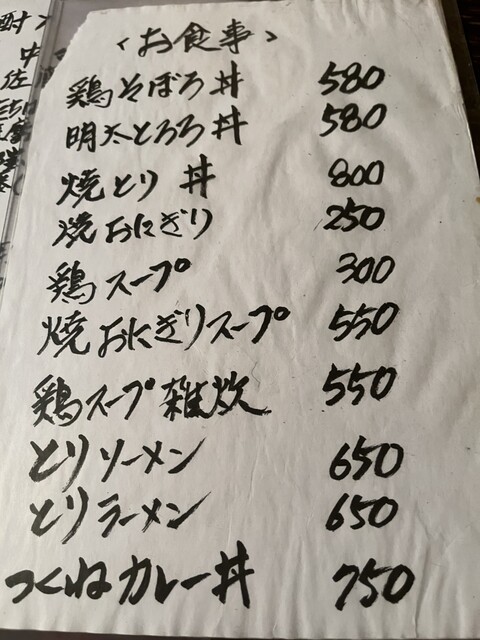 <お食事>
鶏そぼろ丼 580
明太とろろ丼 580
焼とり丼 800
焼おにぎり 250
鶏スープ 300
焼おにぎりスープ 550
鶏スープ雑炊 550
とりソーメン 650
とりラーメン 650
つくねカレー丼 750